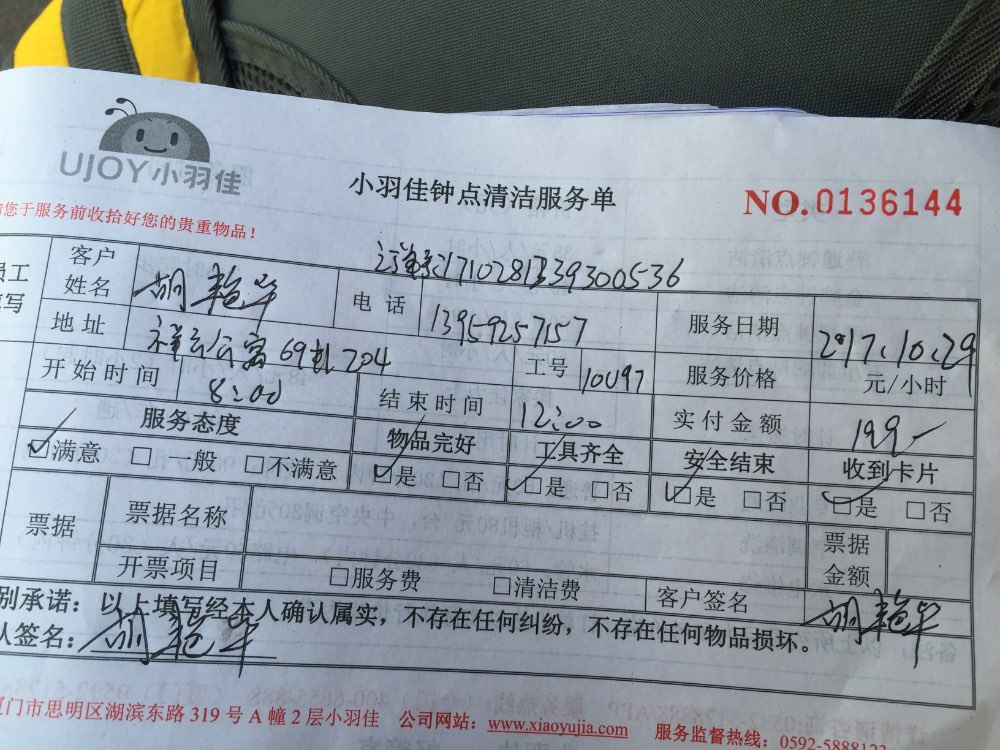 UJOY小羽佳
小羽佳钟点清洁服务单
NO.0136144
请您于服务前收拾好您的贵重物品!
客户姓名 胡艳华 电话 13959257157 服务日期 2017.10.29
1710281339300536
地址 祥云公寓69 704 工号 服务价格 元/小时
开始时间 8:00 结束时间 12:00 实付金额 199-
服务态度 物品完好 工具齐全 安全结束 收到卡片
☑满意 □一般 □不满意 ☑是 □否 ☑是 □否 ☑是 □否 ☑是 □否
票据 票据名称 票据金额
开票项目 □服务费 □清洁费 客户签名 胡艳华
别承诺:以上填写经本人确认属实,不存在任何纠纷,不存在任何物品损坏。
人签名:胡艳华
厦门市思明区湖滨东路319号A幢2层小羽佳 公司网站:www.xiaoyujia.com 服务监督热线:0592-5888123